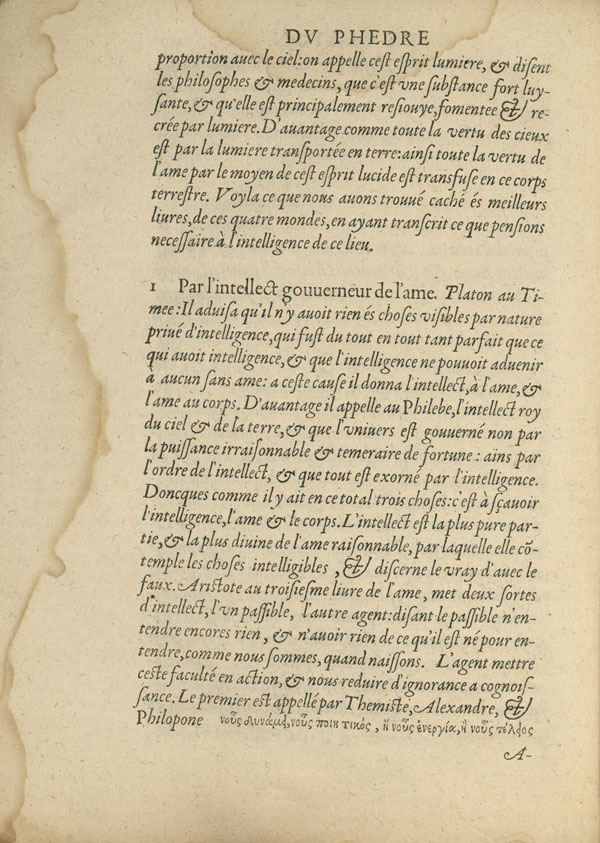 DV PHEDRE
proportion auec le ciel:on appelle cest esprit lumiere, & disent
les philosophes & medecins, que c'est vne substance fort luy-
sante, & qu'elle est principalement resiouye, fomentee & re-
crée par lumiere. D'auantage comme toute la vertu des cieux
est par la lumiere transportée en terre:ainsi toute la vertu de
l'ame par le moyen de cest esprit lucide est transfuse en ce corps
terrestre. Voyla ce que nous auons trouué caché és meilleurs
liures, de ces quatre mondes, en ayant transcrit ce que pensions
necessaire à l'intelligence de ce lieu.
1 Par l'intellect gouuerneur de l'ame. Platon au Ti-
mee:Il aduisa qu'il n'y auoit rien és choses visibles par nature
priué d'intelligence, qui fust du tout en tout tant parfait que ce
qui auoit intelligence, & que l'intelligence ne pouuoit aduenir
à aucun sans ame: a ceste cause il donna l'intellect, à l'ame, &
l'ame au corps. D'auantage il appelle au Philebe, l'intellect roy
du ciel & de la terre, & que l'vniuers est gouuerné non par
la puissance irraisonnable & temeraire de fortune: ains par
l'ordre de l'intellect, & que tout est exorné par l'intelligence.
Doncques comme il y ait en ce total trois choses:c'est à sçauoir
l'intelligence, l'ame & le corps. L'intellect est la plus pure par-
tie, & la plus diuine de l'ame raisonnable, par laquelle elle cõ-
temple les choses intelligibles, & discerne le vray d'auec le
faux. Aristote au troisiesme liure de l'ame, met deux sortes
d'intellect, l'vn passible, l'autre agent:disant le passible n'en-
tendre encores rien, & n'auoir rien de ce qu'il est né pour en-
tendre, comme nous sommes, quand naissons. L'agent mettre
ceste faculté en action, & nous reduire d'ignorance a cognois-
sance. Le premier est appellé par Themiste, Alexandre, &
Philopone νοῦς δυνάμει, νοῦς ποιητικὸς, ἢ νοῦς ἐνεργία, ἢ νοῦς
A-